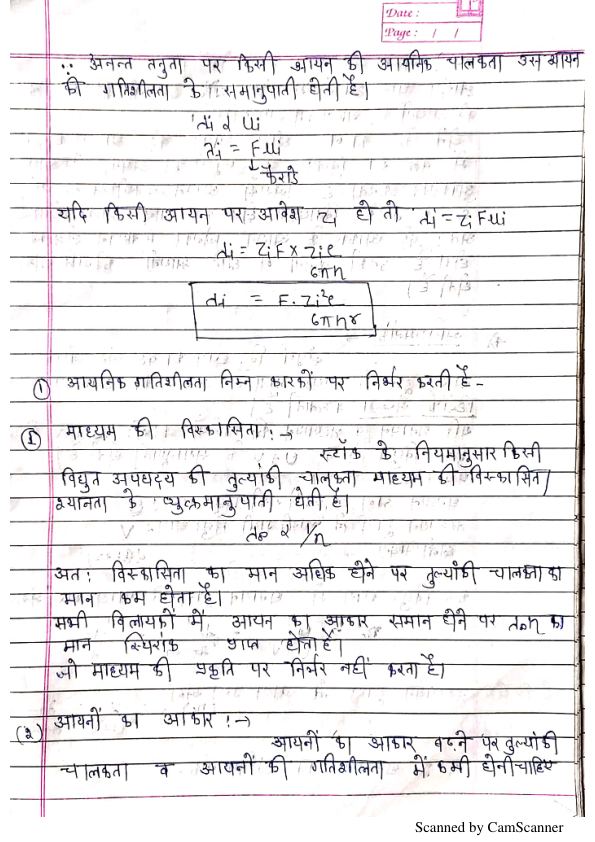 Date :
Page : / /
∴ अनन्त तनुता पर किसी आयन की आयनिक चालकता उस आयन
की गतिशीलता के समानुपाती होती है।
λi α Ui
λi = Fui
↓ फैराडे
यदि किसी आयन पर आवेश Zi हो तो λi = ZiFui
λi = ZiF x Zie / 6πn
λi = F. Zi²e / 6πnr
① आयनिक गतिशीलता निम्न कारकों पर निर्भर करती है -
① माध्यम की विस्कासिता :→
स्टॉक के नियमानुसार किसी
विद्युत अपघद्य की तुल्यांकी चालकता माध्यम की विस्कासिता/
श्यानता के व्युत्क्रमानुपाती होती है।
λ∞ α 1/n
अत: विस्कासिता का मान अधिक होने पर तुल्यांकी चालकता का
मान कम होता है।
सभी विलायकों में, आयन का आकार समान होने पर λ∞n का
मान स्थिरांक प्राप्त होता है।
जो माध्यम की प्रकृति पर निर्भर नहीं करता है।
(२) आयनों का आकार :→
आयनों का आकार बढ़ने पर तुल्यांकी
चालकता व आयनों की गतिशीलता में कमी होनी चाहिए
Scanned by CamScanner